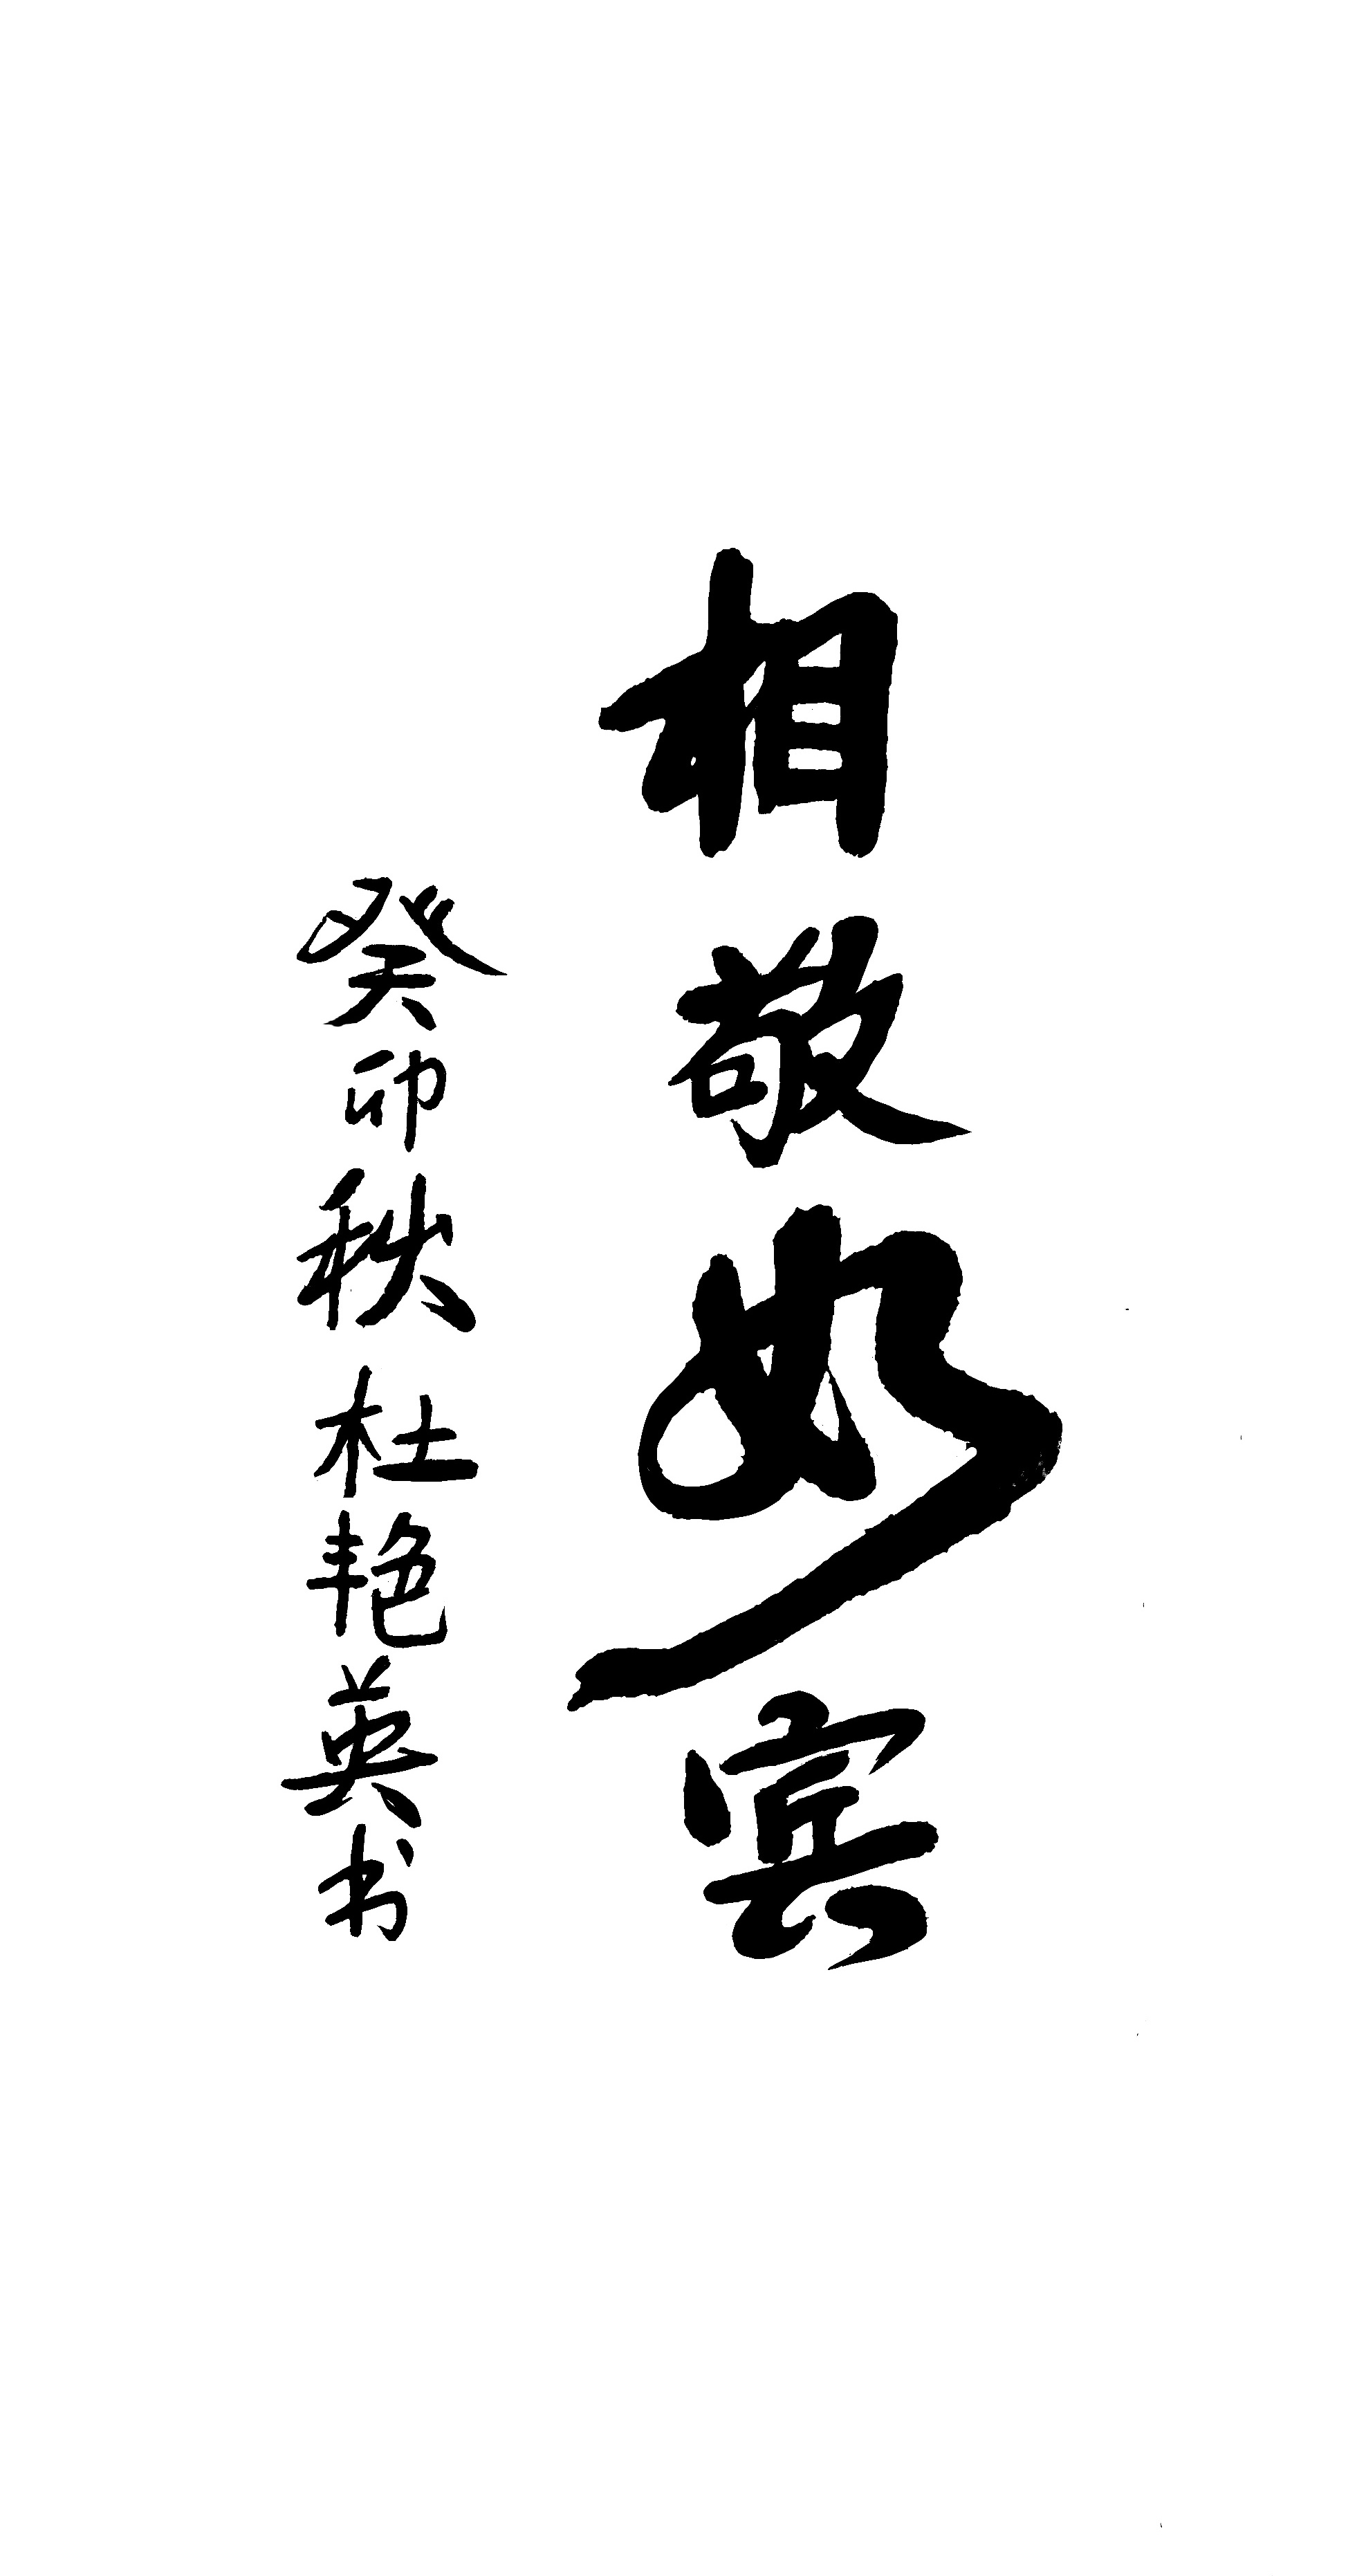 相敬如宾
癸卯秋杜艳英书